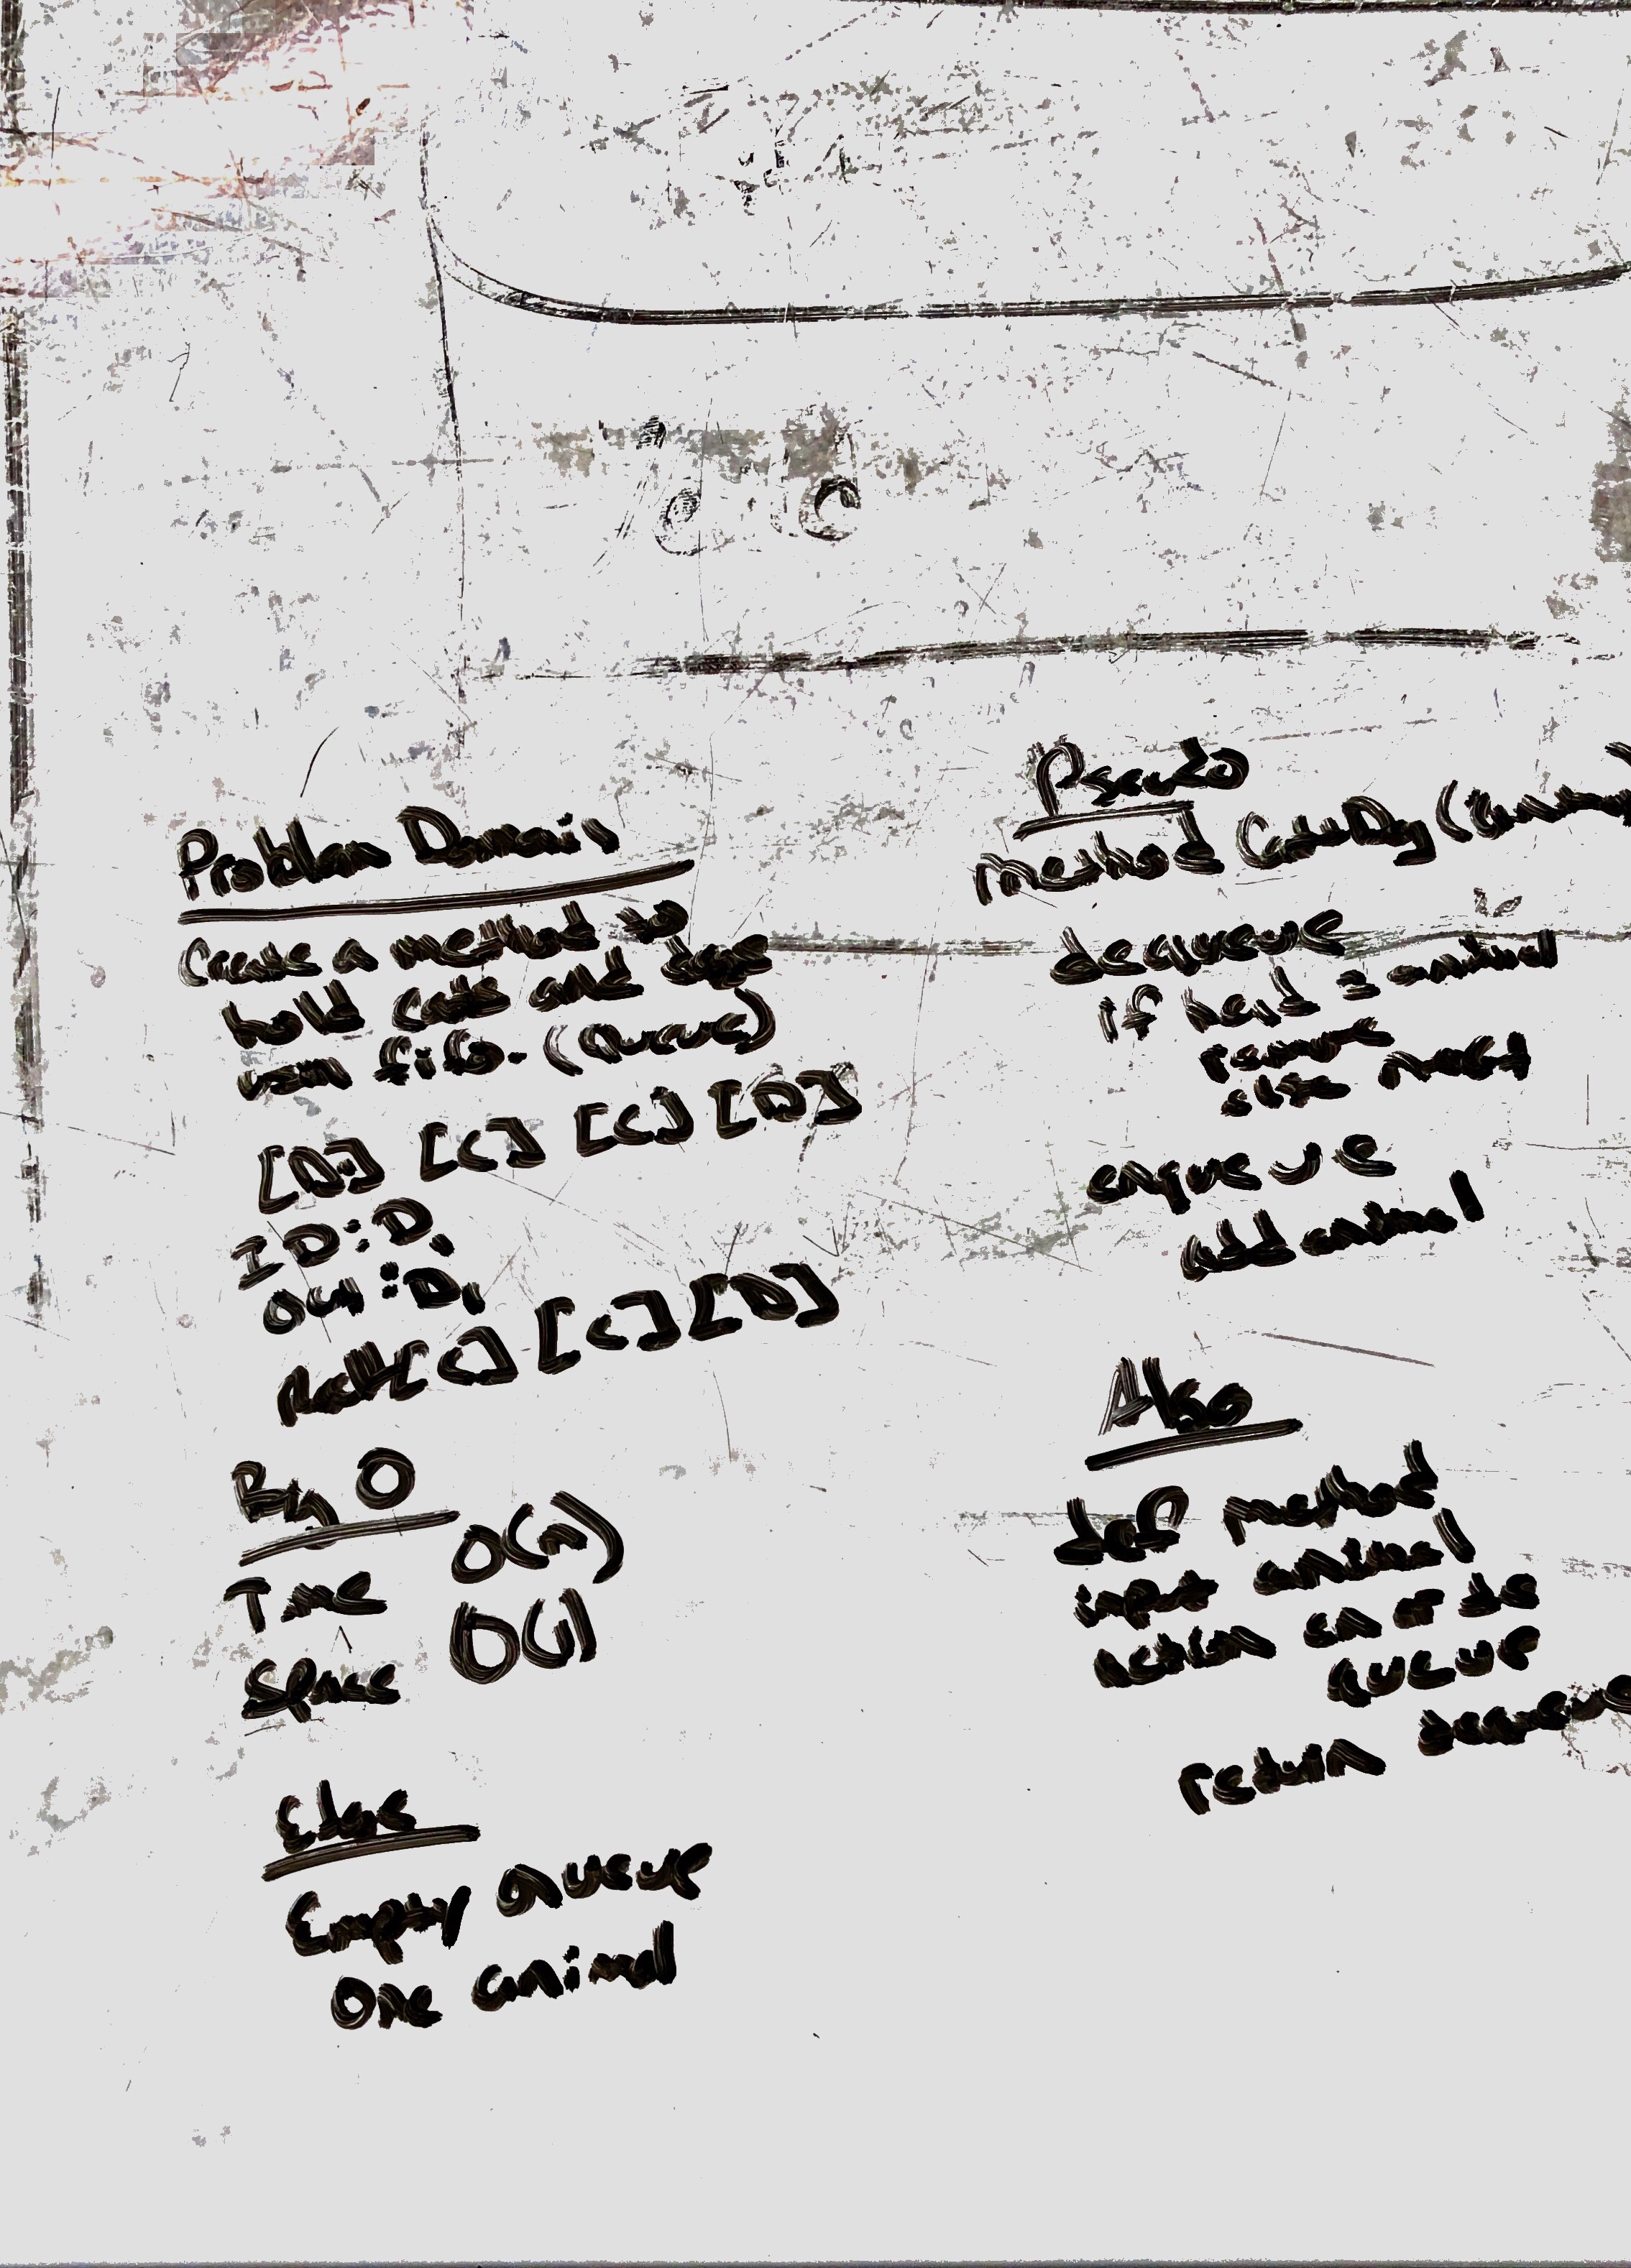 Problem Domain
Create a method to
hold cats and dogs
using fifo. (Queue)
[D] [C] [C] [D]
ID: D,
Out: D,
[C] [C] [D]
Big O
Time O(n)
Space O(1)
Edge
Empty Queue
One animal
Pseudo
Method CatDog (
dequeue
if head = animal
remove
else next
enqueue
add animal
Algo
def method
input animal
action en or de
queue
return dequeue